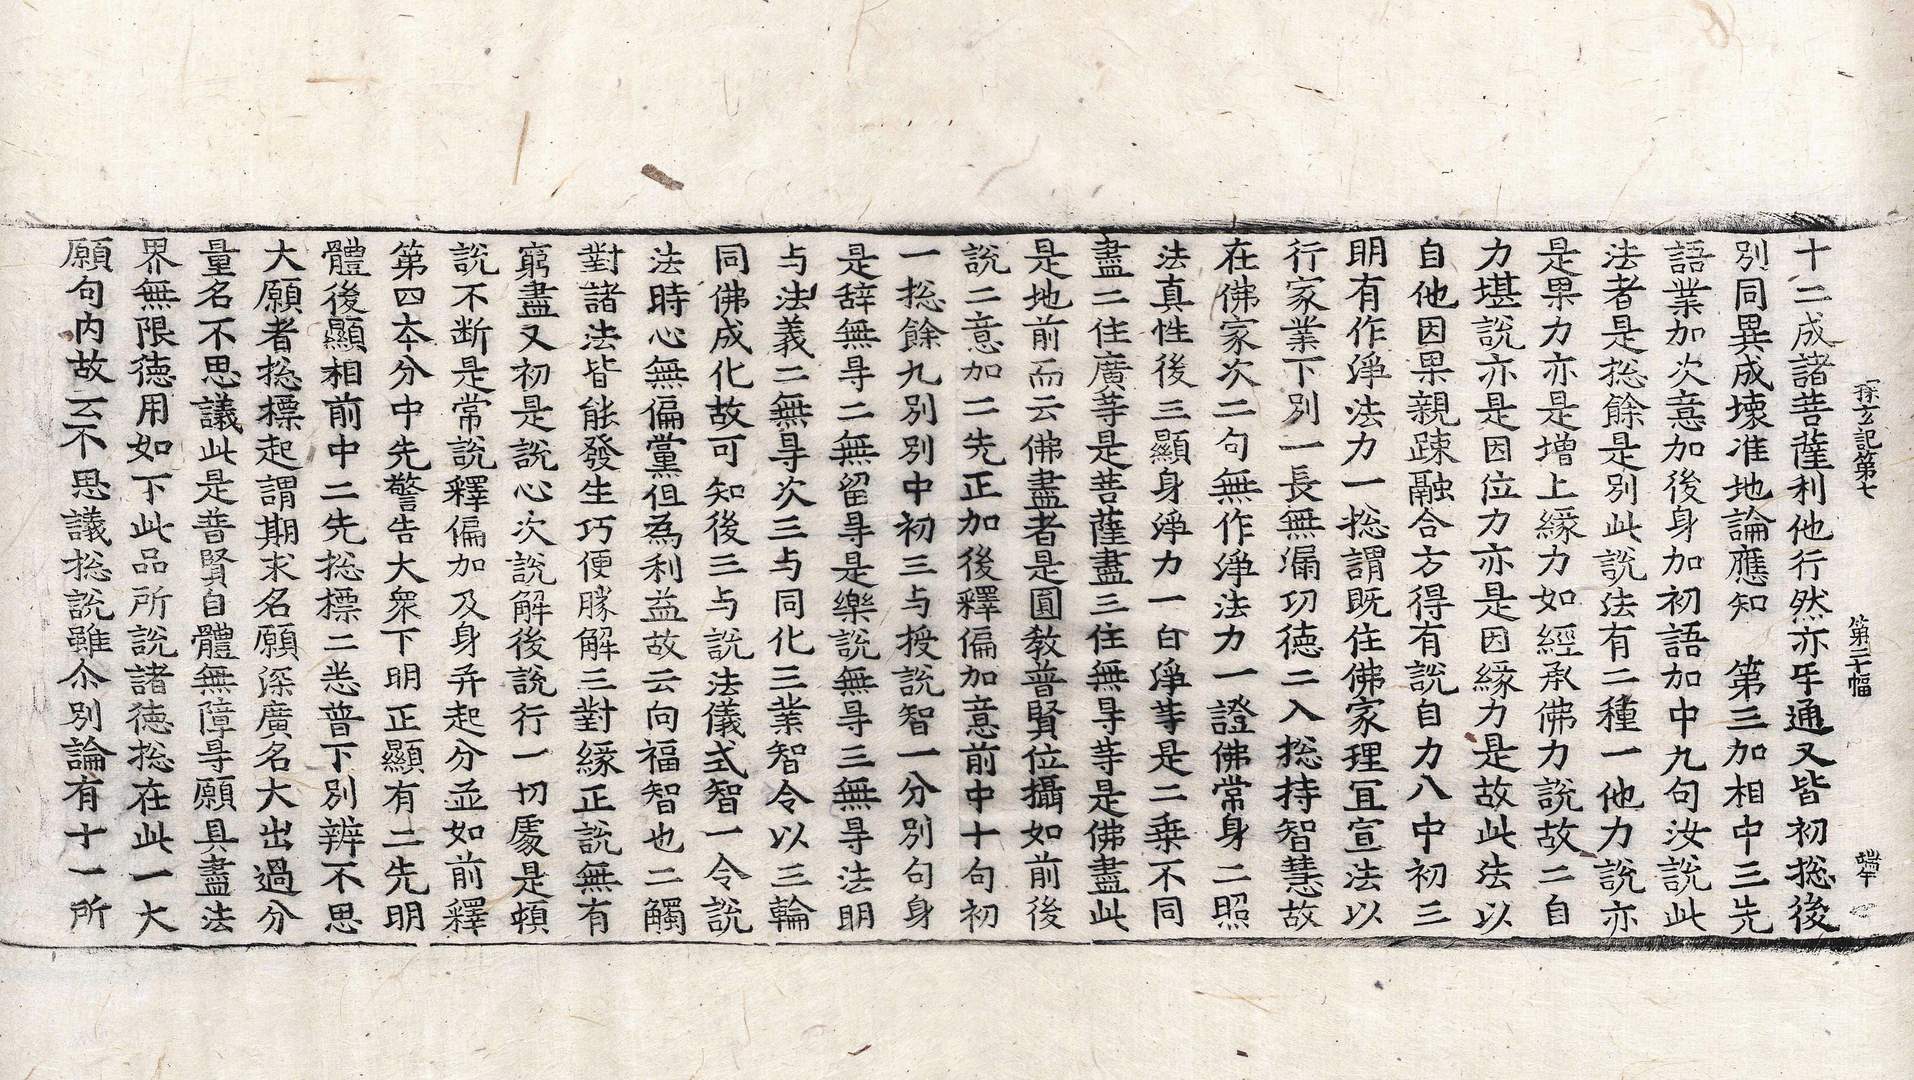 探玄記第七　第三十幅
十二成諸菩薩利他行然亦乎通又皆初捴後
別同異成壞准地論應知　第三加相中三先
語業加次意加後身加初語加中九句汝說此
法者是捴餘是別此說法有二種一他力說亦
是果力亦是增上緣力如經承佛力說故二自
力堪說亦是因位力亦是因緣力是故此法以
自他因果親踈融合方得有說自力八中初三
明有作淨法力一捴謂既住佛家理冝宣法以
行家業下別一長無漏功德二入捴持智慧故
在佛家次二句無作淨法力一證佛常身二照
法真性後三顯身淨力一白淨䓁是二乗不同
盡二住廣䓁是菩薩盡三住無㝵䓁是佛盡此
是地前而云佛盡者是圓教普賢位攝如前後
說二意加二先正加後釋偏加意前中十句初
一捴餘九別別中初三与授說智一分別句身
是辞無㝵二無留㝵是樂說無㝵三無㝵法明
与法義二無㝵次三与同化三業智令以三輪
同佛成化故可知後三与說法儀式智一令說
法時心無偏黨但為利益故云向福智也二觸
對諸法皆能發生巧便勝解三對緣正說無有
窮盡又初是說心次說解後說行一切處是頓
說不断是常說釋偏加及身并起分並如前釋
第四本分中先警告大衆下明正顯有二先明
體後顯相前中二先捴標二悉普下別辨不思
大願者捴標起謂期求名願深廣名大出過分
量名不思議此是普賢自體無障㝵願具盡法
界無限德用如下此品所說諸德捴在此一大
願句內故云不思議捴說雖尒別論有十一所